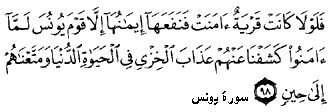 فَلَوْلَا كَانَتْ قَرْيَةٌ ءَامَنَتْ فَنَفَعَهَا إِيمَٰنُهَا إِلَّا قَوْمَ يُونُسَ لَمَّا
ءَامَنُوا۟ كَشَفْنَا عَنْهُمْ عَذَابَ ٱلْخِزْىِ فِى ٱلْحَيَوٰةِ ٱلدُّنْيَا وَمَتَّعْنَٰهُمْ
إِلَىٰ حِينٍ ٩٨ سورة يونس